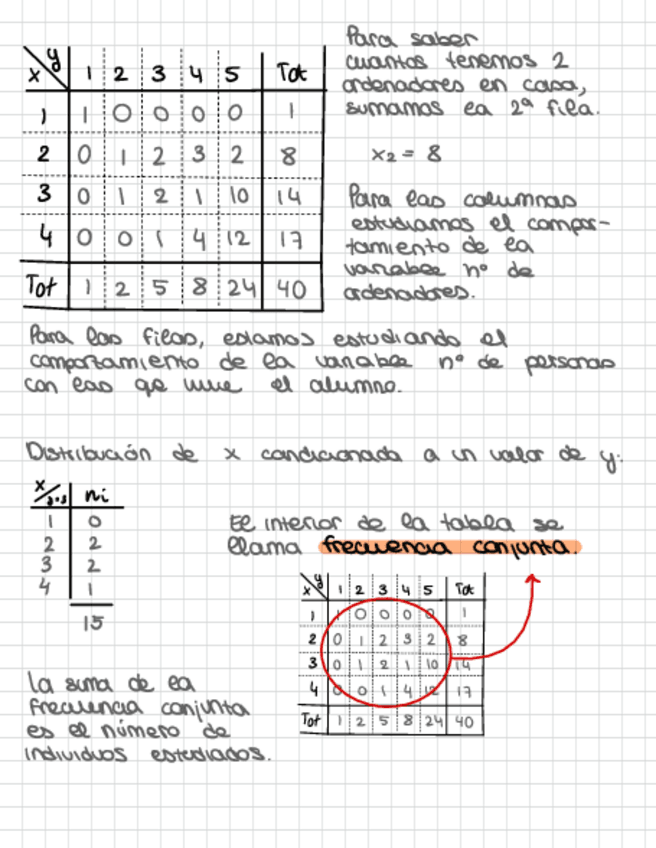 x y 1 2 3 4 5 Tot
1 1 0 0 0 0 1
2 0 1 2 3 2 8
3 0 1 2 1 10 14
4 0 0 1 4 12 17
Tot 1 2 5 8 24 40
Para saber
cuantos tenemos 2
ordenadores en casa,
sumamos la 2ª fila.
x2 = 8
Para las columnas
estudiamos el compor-
tamiento de la
variable nº de
ordenadores.
Para las filas, estamos estudiando el
comportamiento de la variable nº de personas
con las qe vive el alumno.
Distribución de x condicionada a un valor de y:
x/y=3 ni
1 0
2 2
3 2
4 1
15
El interior de la tabla se
llama frecuencia conjunta.
x y 1 2 3 4 5 Tot
1 1 0 0 0 0 1
2 0 1 2 3 2 8
3 0 1 2 1 10 14
4 0 0 1 4 12 17
Tot 1 2 5 8 24 40
La suma de la
frecuencia conjunta
es el número de
individuos estudiados.